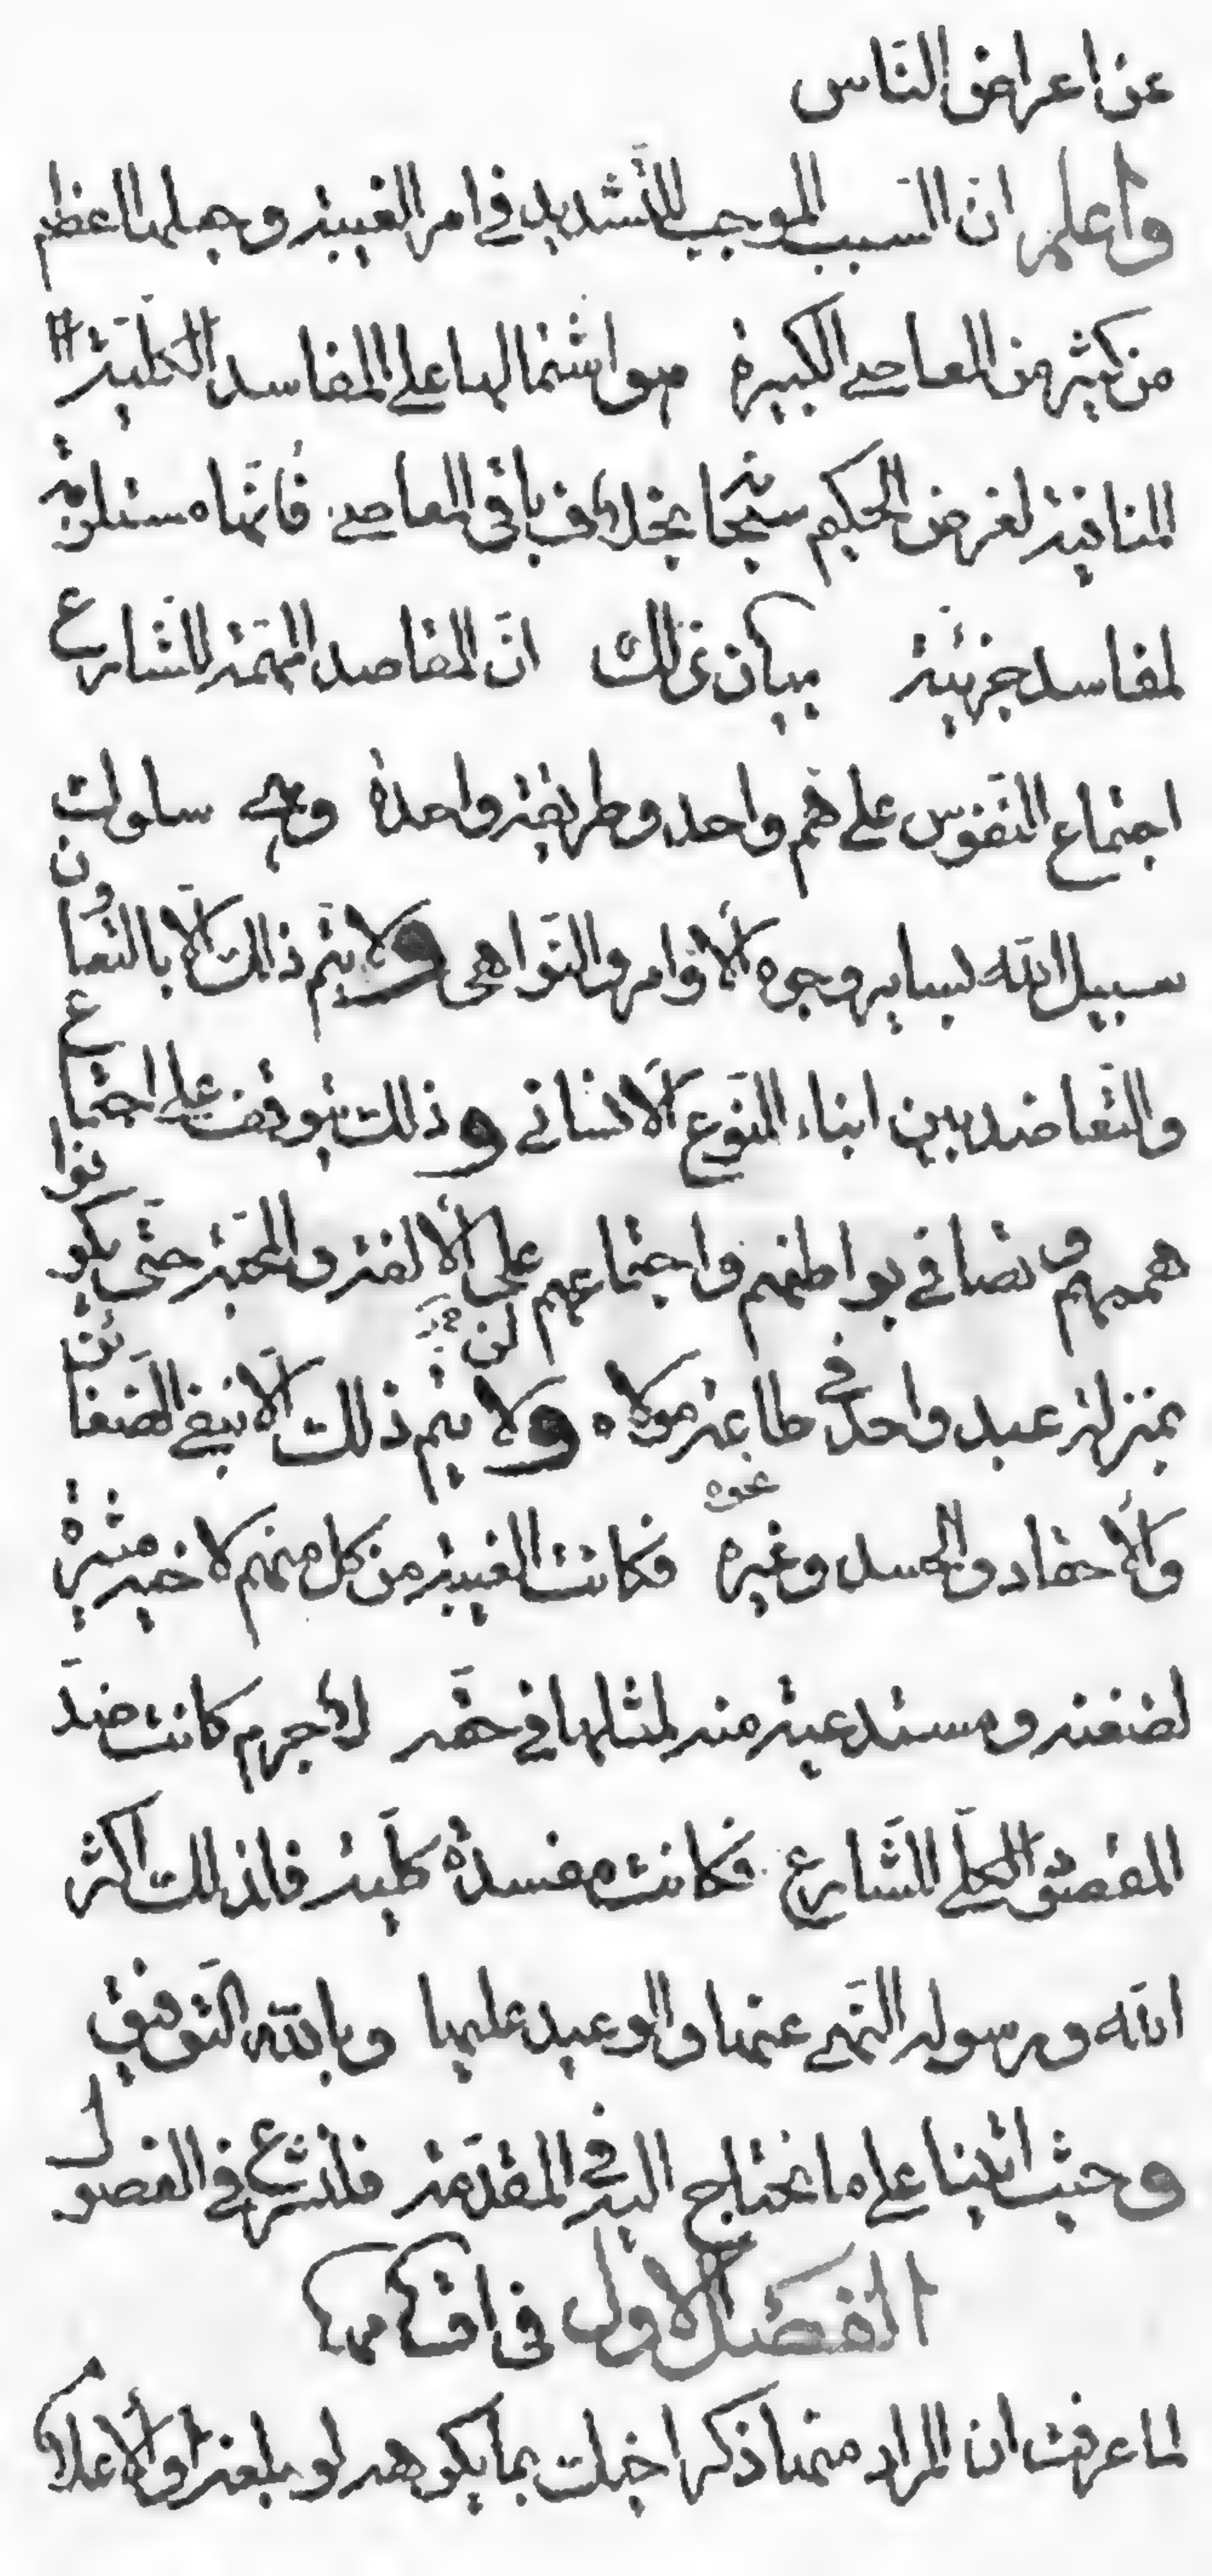 عن اعراض الناس
واعلم ان السبب الموجب للتشديد في امر الغيبة وجعلها اعظم
من كثير من المعاصي الكبيرة هو اشتمالها على المفاسد الكلية
المنافية لغرض الحكيم سبحانه بخلاف باقي المعاصي فانها مستلزمة
لمفاسد جزئية بيان ذلك ان المقاصد المهمة للشارع
اجتماع النفوس على هم واحد وطريقة واحدة وهي سلوك
سبيل الله بساير وجوه الأوامر والنواهي ولا يتم ذلك الا بالتعاون
والتعاضد بين ابناء النوع الانساني وذلك يتوقف على اجتماع
هممهم وتصافي بواطنهم واجتماعهم على الألفة والمحبة حتى يكونوا
بمنزلة عبد واحد في طاعة مولاه ولن يتم ذلك الا بنفي الضغائن
والأحقاد والحسد ونحوه فكانت الغيبة من كل منهم لاخيه مثيرة
لضغنه ومستدعية منه لمثلها في حقه لاجرم كانت ضد
المقصود الكلي للشارع فكانت مفسدة كلية فلذلك اكثر
الله ورسوله النهي عنها والوعيد عليها وبالله التوفيق
وحيث اتينا على ما نحتاج اليه في المقدمة فلنشرع في الفصول
الفصل الاول في اقسامها
لما عرفت ان المراد منها ذكر اخيك بما يكرهه لو بلغه او الاعلام